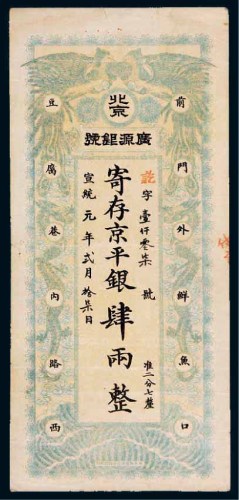 北京
廣源銀號
前門外鮮魚口
字壹仟零柒號
寄存京平銀肆兩整
准二分七釐
宣統元年貳月拾柒日
豆腐巷內路西